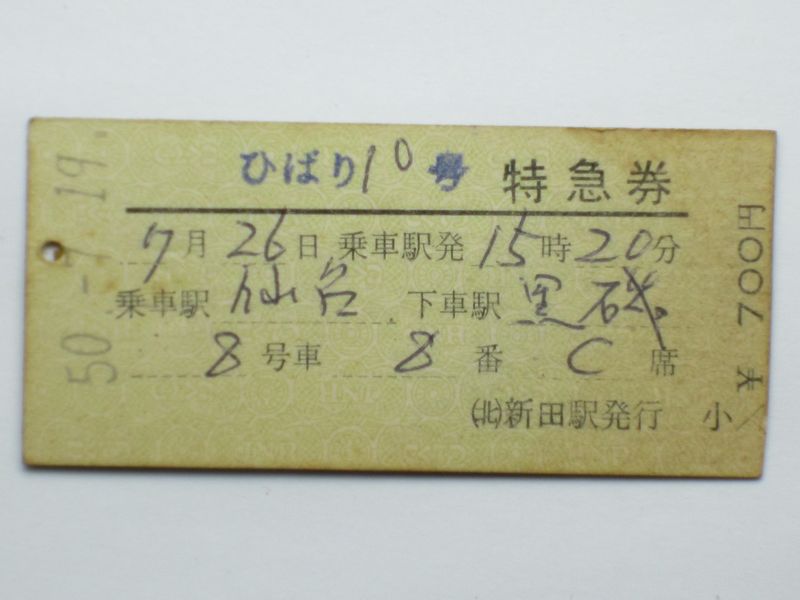 ひばり10号 特急券
7月26日 乗車駅発15時20分
乗車駅 仙台 下車駅 黒磯
8号車 8番 C席
㈷新田駅発行 小
50.-7.19.
大 700円